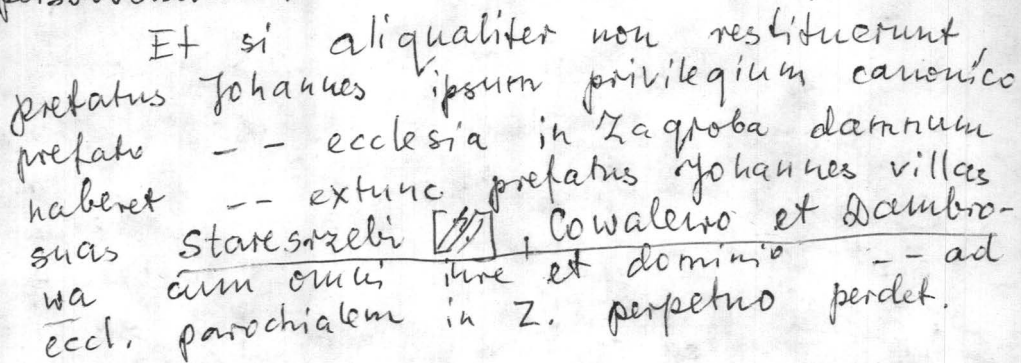 Et si aliqualiter non restituerunt,
prefatus Johannes ipsum privilegium canonico
prefato -- ecclesia in Zagroba damnum
haberet -- extunc prefatus Johannes villas
suas Staresrzebi [], Cowalewo et Dambro-
wa cum omni iure et dominio -- ad
eccl. parochialem in Z. perpetuo perdet.